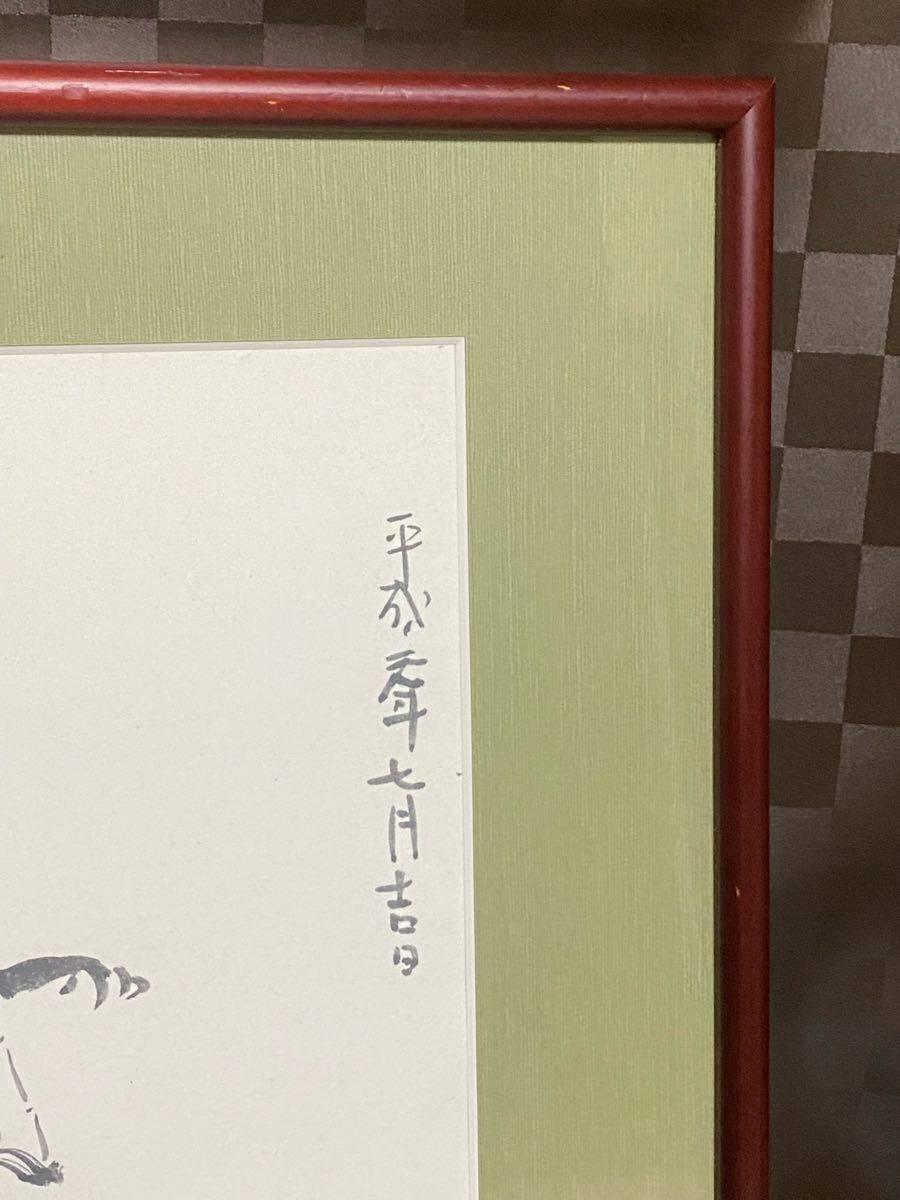 平成元年七月吉日